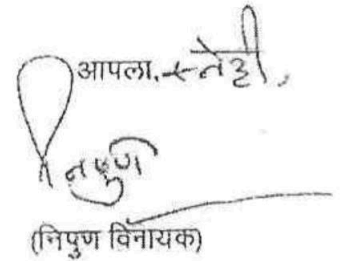 आपला, स्नेही,
निपुण
(निपुण विनायक)